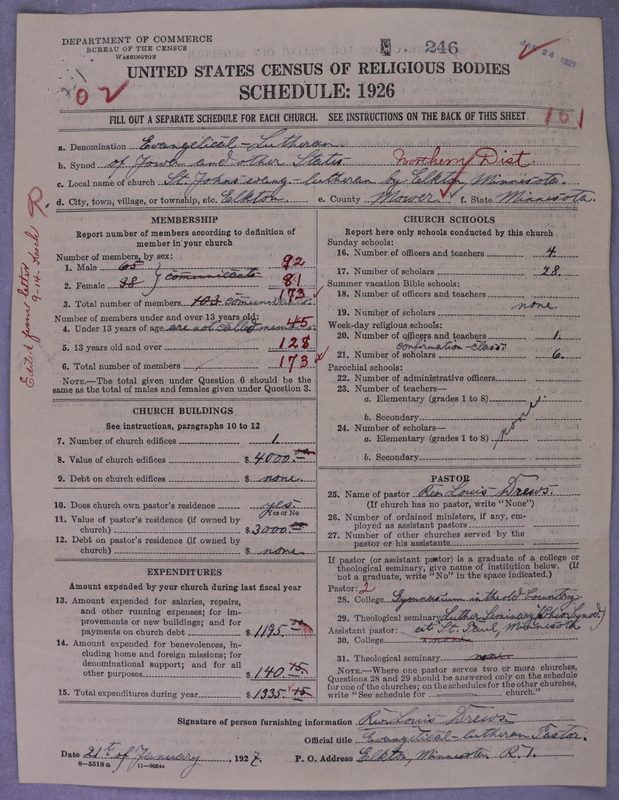 DEPARTMENT OF COMMERCE
BUREAU OF THE CENSUS
WASHINGTON
246
02
UNITED STATES CENSUS OF RELIGIOUS BODIES
SCHEDULE: 1926
FILL OUT A SEPARATE SCHEDULE FOR EACH CHURCH. SEE INSTRUCTIONS ON THE BACK OF THIS SHEET
101
a. Denomination Evangelical-Lutheran
b. Synod of Iowa and other States Northern Dist.
c. Local name of church St. Johns evang-lutheran by Elkton, Minnesota.
d. City, town, village, or township, etc. Elkton. e. County Mower f. State Minnesota.
Edited from letter
9-14-
MEMBERSHIP
Report number of members according to definition of
member in your church
Number of members, by sex:
1. Male 65 92
2. Female 38 communicants 81
3. Total number of members 103 173
Number of members under and over 13 years old:
4. Under 13 years of age are not called members. 45
5. 13 years old and over 128
6. Total number of members 173
NOTE.—The total given under Question 6 should be the
same as the total of males and females given under Question 3.
CHURCH BUILDINGS
See instructions, paragraphs 10 to 12
7. Number of church edifices 1.
8. Value of church edifices $ 4000.
9. Debt on church edifices $ none.
10. Does church own pastor's residence yes.
Yes or No
11. Value of pastor's residence (if owned by
church) $ 3000
12. Debt on pastor's residence (if owned by
church) $ none
EXPENDITURES
Amount expended by your church during last fiscal year
13. Amount expended for salaries, repairs,
and other running expenses; for im-
provements or new buildings; and for
payments on church debt $ 1195.
14. Amount expended for benevolences, in-
cluding home and foreign missions; for
denominational support; and for all
other purposes $ 140. 15
15. Total expenditures during year $ 1335. 15
CHURCH SCHOOLS
Report here only schools conducted by this church
Sunday schools:
16. Number of officers and teachers 4.
17. Number of scholars 28.
Summer vacation Bible schools:
18. Number of officers and teachers
19. Number of scholars none.
Week-day religious schools:
20. Number of officers and teachers 1.
confirmation-class:
21. Number of scholars 6.
Parochial schools:
22. Number of administrative officers
23. Number of teachers—
a. Elementary (grades 1 to 8)
b. Secondary none
24. Number of scholars—
a. Elementary (grades 1 to 8)
b. Secondary
PASTOR
25. Name of pastor Rev. Louis Drews.
(If church has no pastor, write "None")
26. Number of ordained ministers, if any, em-
ployed as assistant pastors
27. Number of other churches served by the
pastor or his assistants
If pastor (or assistant pastor) is a graduate of a college or
theological seminary, give name of institution below. (If
not a graduate, write "No" in the space indicated.)
Pastor: 2
28. College Gymnasium in the old Country
29. Theological seminary Luther Seminary (Ohio Synod)
Assistant pastor: at St. Paul, Minnesota
30. College none
31. Theological seminary none
NOTE.—Where one pastor serves two or more churches,
Questions 28 and 29 should be answered only on the schedule
for one of the churches; on the schedules for the other churches,
write "See schedule for church."
Signature of person furnishing information Rev. Louis Drews
Official title Evangelical-lutheran Pastor.
Date 21st of January, 1927. P. O. Address Elkton, Minnesota R. 1.
8-5518a 11-9084